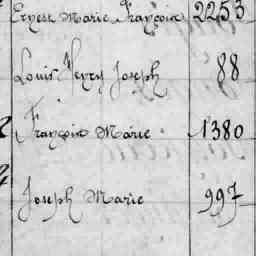 Ernest Marie François 2253
Louis Henry Joseph 88
François Marie 1380
Joseph Marie 997